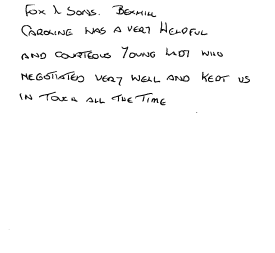 Fox & Sons. Bexhill
Caroline was a very Helpful
and courteous Young Lady who
negotiated very well and kept us
in touch all the Time